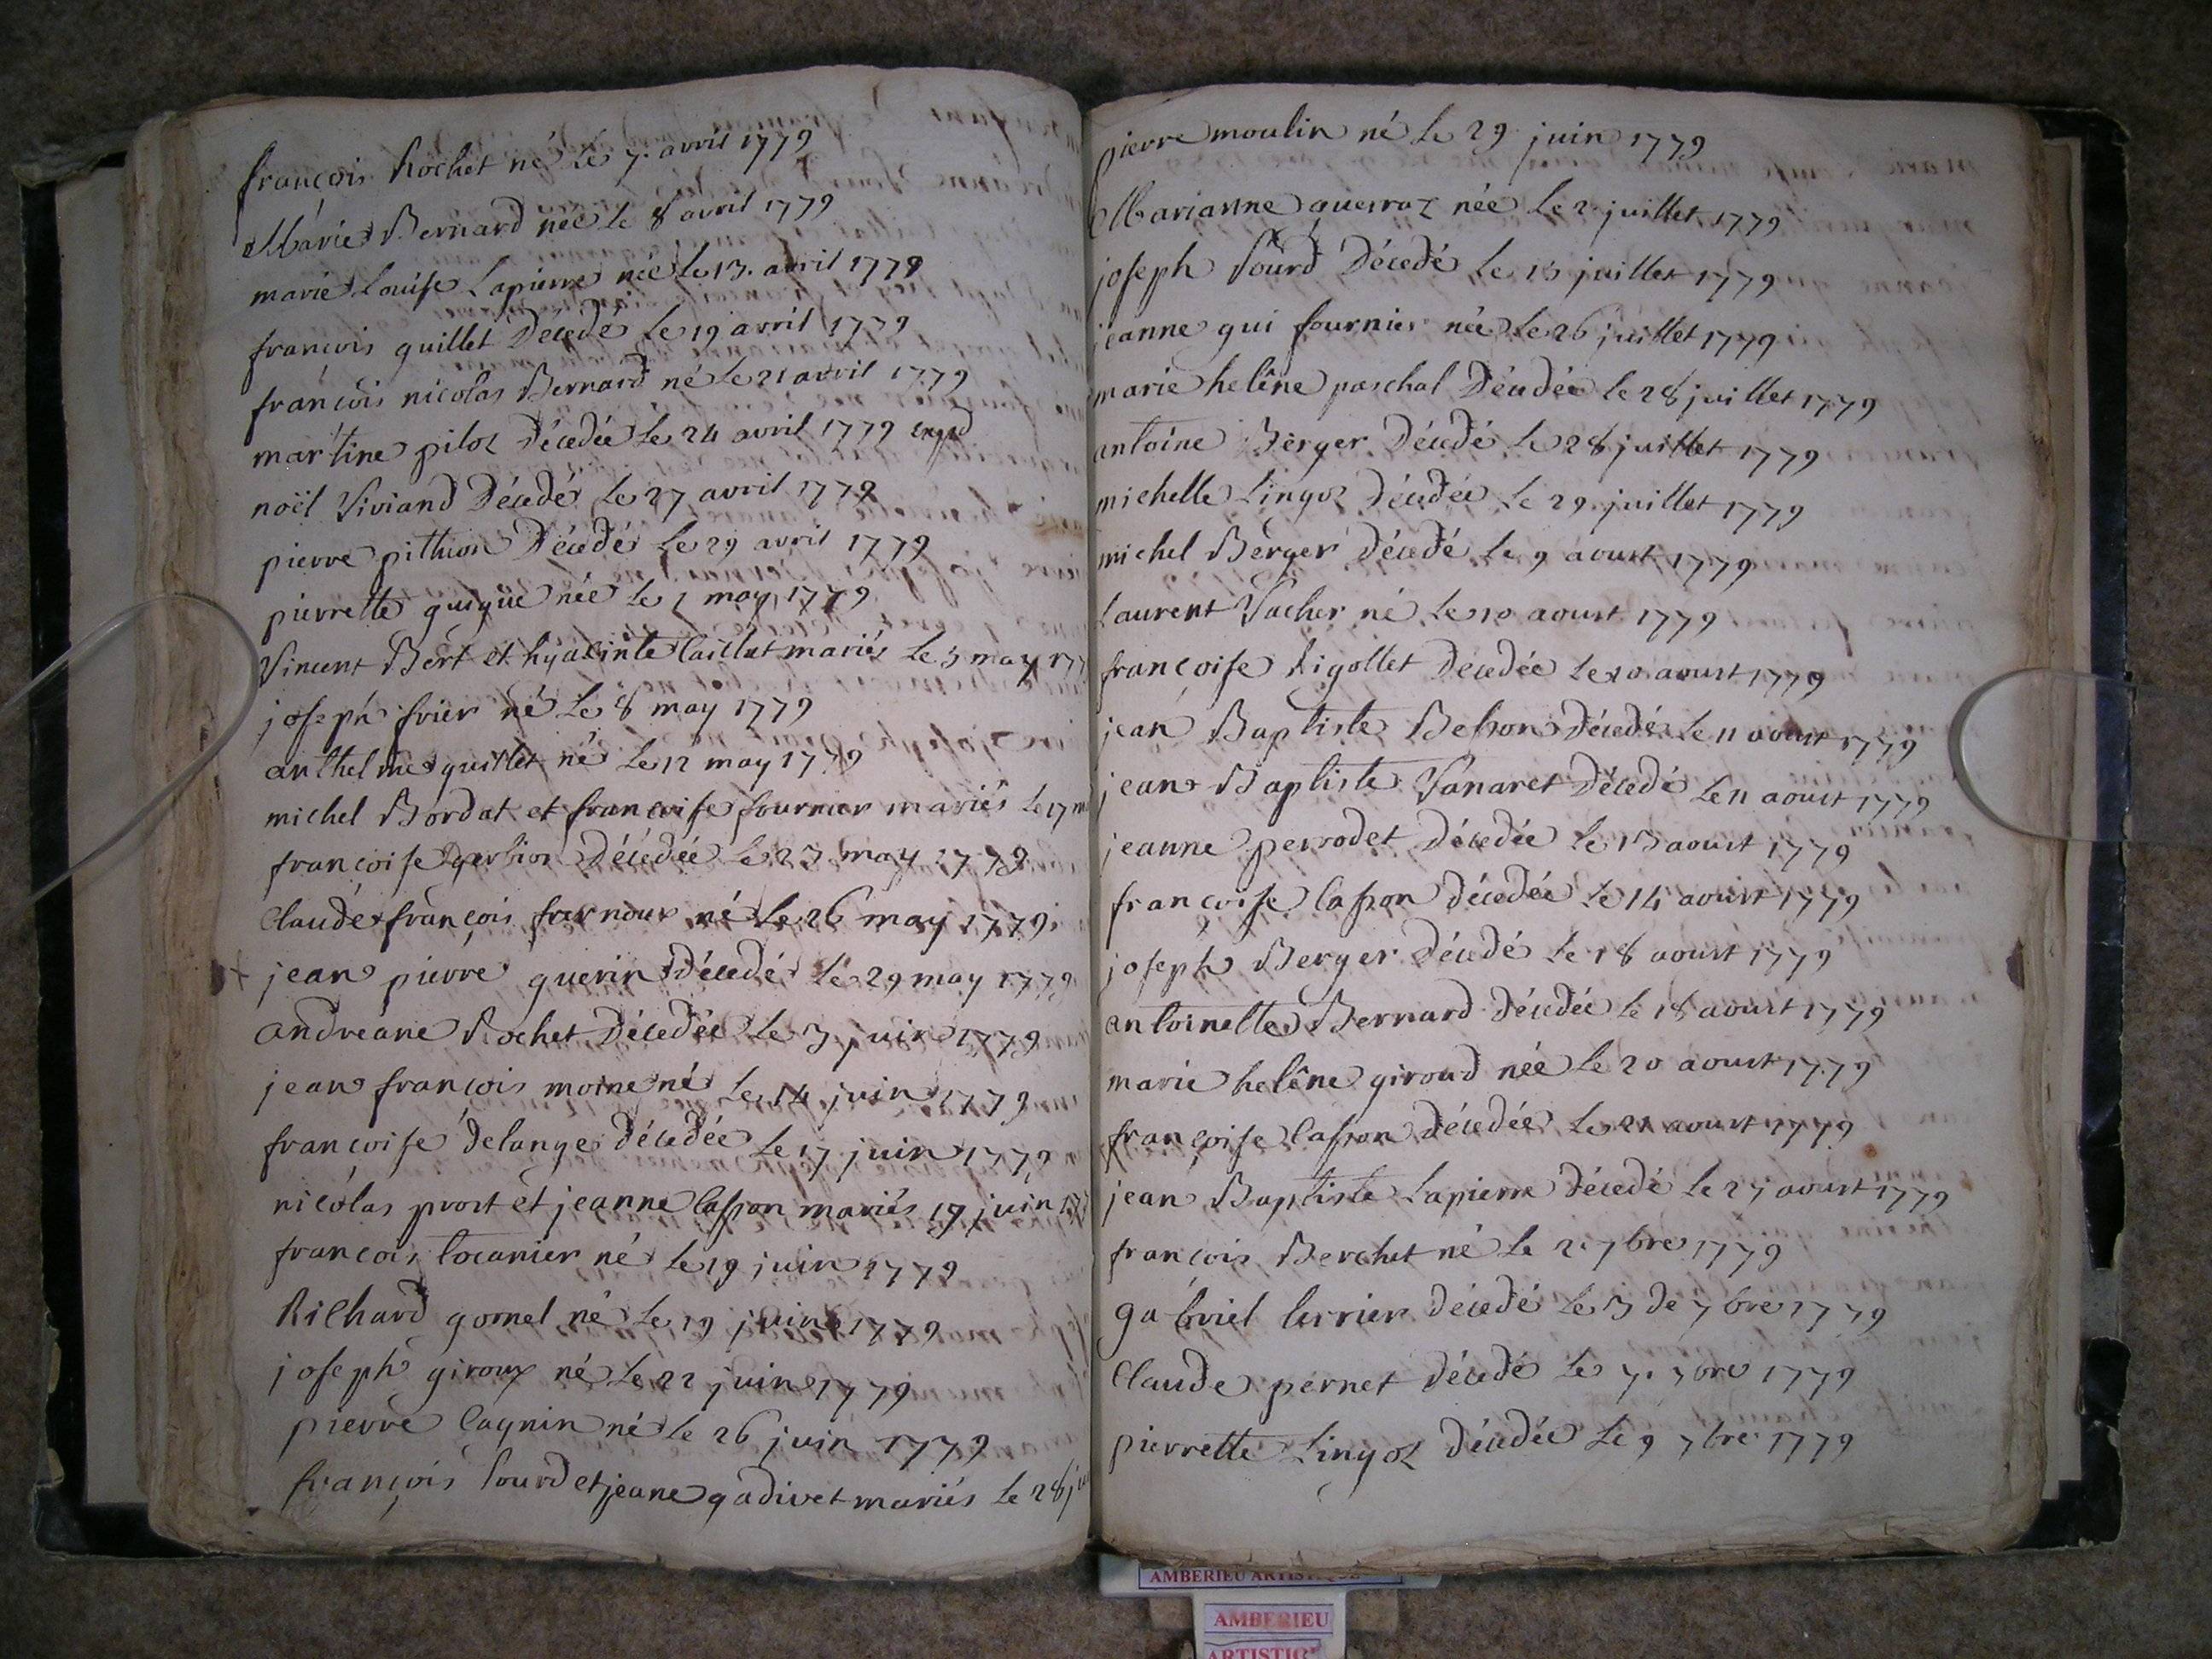 françois Rochet né le 7. avril 1779
Marie Bernard née le 8 avril 1779
marie Louise Lapierre née le 13. avril 1779
françois guillet Décedé le 19 avril 1779
françois nicolas Bernard né le 21 avril 1779
martine piloz Décedée le 24 avril 1779
noël Viviand Décedé le 27 avril 1779
pierre pithion Décedé le 29 avril 1779
pierrette guigüe née le 1 may 1779
Vincent Bert et hyacinte Caillat mariés le 3 may 177
joseph frier né le 8 may 1779
anthelme guillet né le 12 may 1779
michel Bordat et francoise fournier mariés le 17 m
françoise Décedée le 23 may 1779
Claude françois né le 26 may 1779
+ jean pierre guerin Décedé le 29 may 1779
andreane Rochet Décedée le 3 juin 1779
jean françois moine né le 14 juin 1779
françoise delange décedée le 17 juin 1779
nicolas prost et jeanne Casson mariés 17 juin 177
françois tocanier né le 19 juin 1779
Richard gornel né le 19 juin 1779
joseph giroux né le 22 juin 1779
pierre Cagnin né le 26 juin 1779
françois Sourd et jeane gadivet mariés le 28 ju
pierre moulin né le 29 juin 1779
Marianne querroz née le 2 juillet 1779
joseph Sourd Décedé le 13 juillet 1779
jeanne gui fournier née le 26 juillet 1779
marie helêne paschal Décedée le 28 juillet 1779
antoine Berger Décedé le 28 juillet 1779
michelle Lingoz Décedée le 29 juillet 1779
michel Berger décedé le 9 aoust 1779
Laurent Vacher né le 10 aoust 1779
françoise Rigollet Décedée le 10 aoust 1779
jean Baptiste Besson décedé le 11 aoust 1779
jean Baptiste Vanaret Décedé le 11 aoust 1779
jeanne perrodet Décedée le 13 aoust 1779
françoise Casson décedée le 14 aoust 1779
joseph Berger Décedé le 18 aoust 1779
antoinette Bernard décedée le 18 aoust 1779
marie helêne giroud née le 20 aoust 1779
françoise Casson décedée le 21 aoust 1779
jean Baptiste Lapierre décedé le 27 aoust 1779
françois Berchet né le 2. 7bre 1779
gabriel décedé le 3 de 7bre 1779
Claude pernet décedé le 7. 7bre 1779
pierrette Lingoz décedée le 9 7bre 1779
AMBERIEU ARTISTIQUE
AMBERIEU
ARTISTIQ